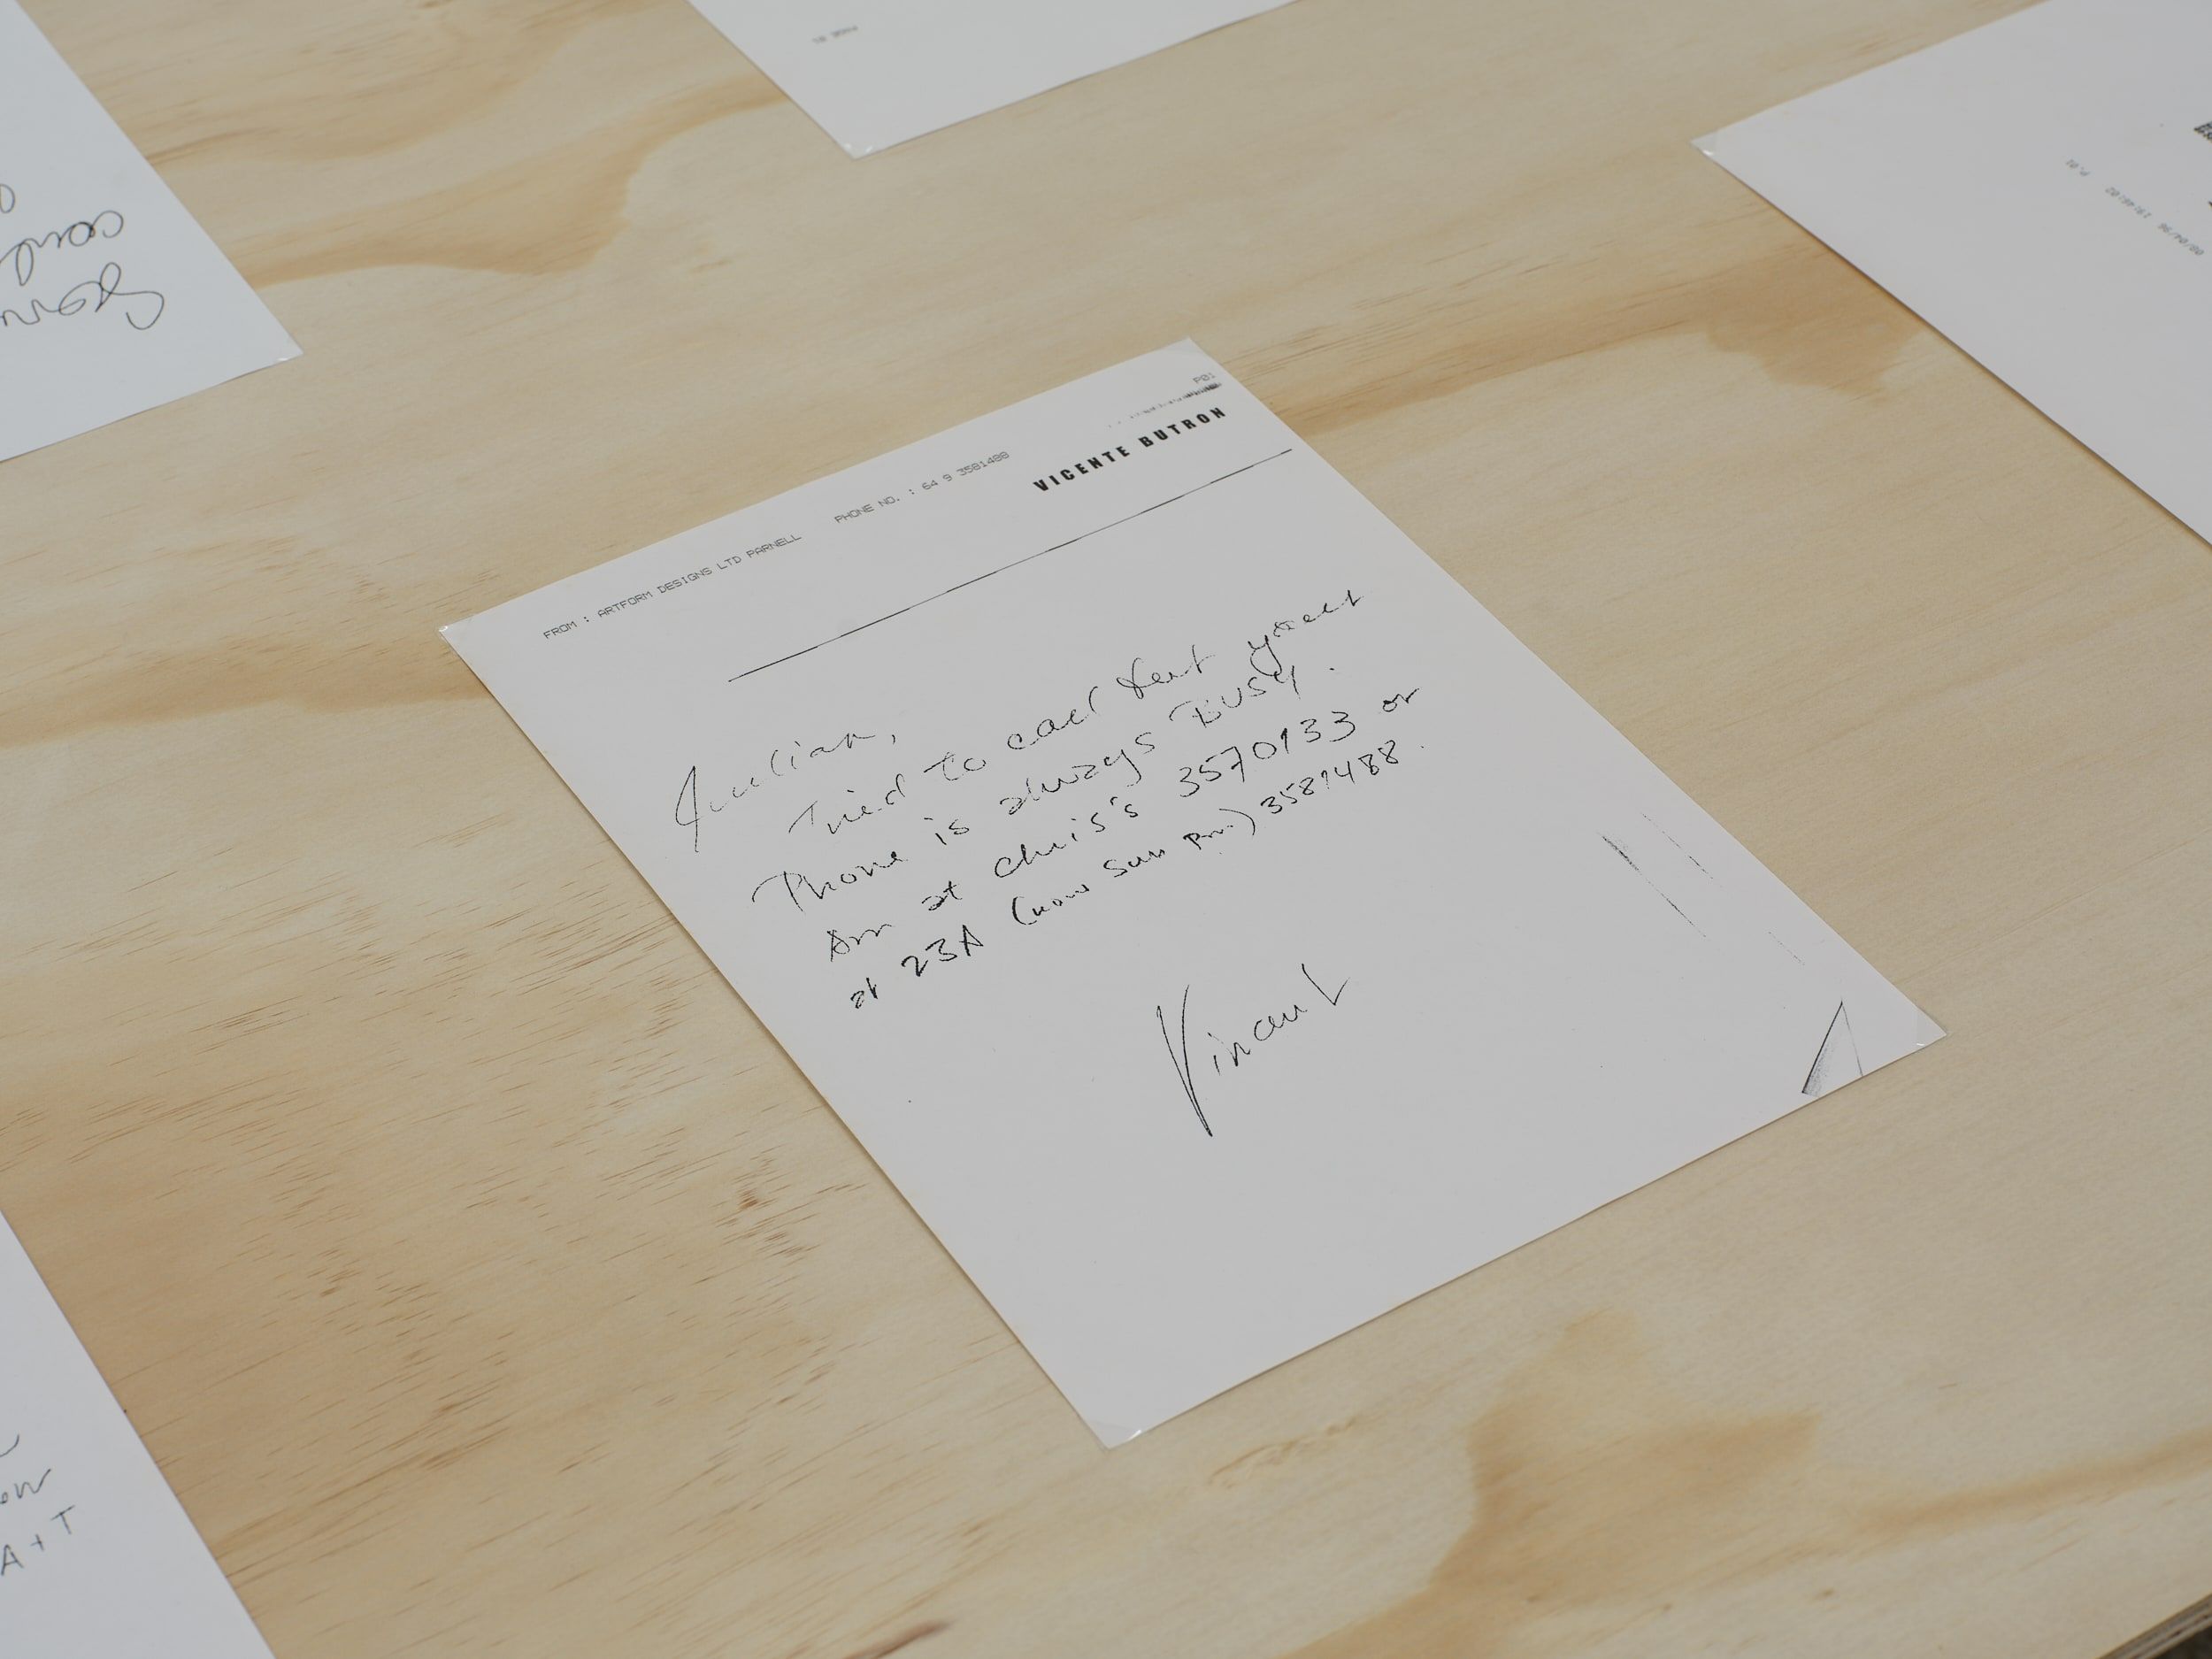 P01
FROM : ARTFORM DESIGNS LTD PARNELL PHONE NO. : 64 9 3581488
VICENTE BUTRON
Julian,
Tried to call but your
Phone is always BUSY.
Am at chris's 3570133 or
at 23A (now Sun pm) 3581488.
Vincent
P.01
A + T